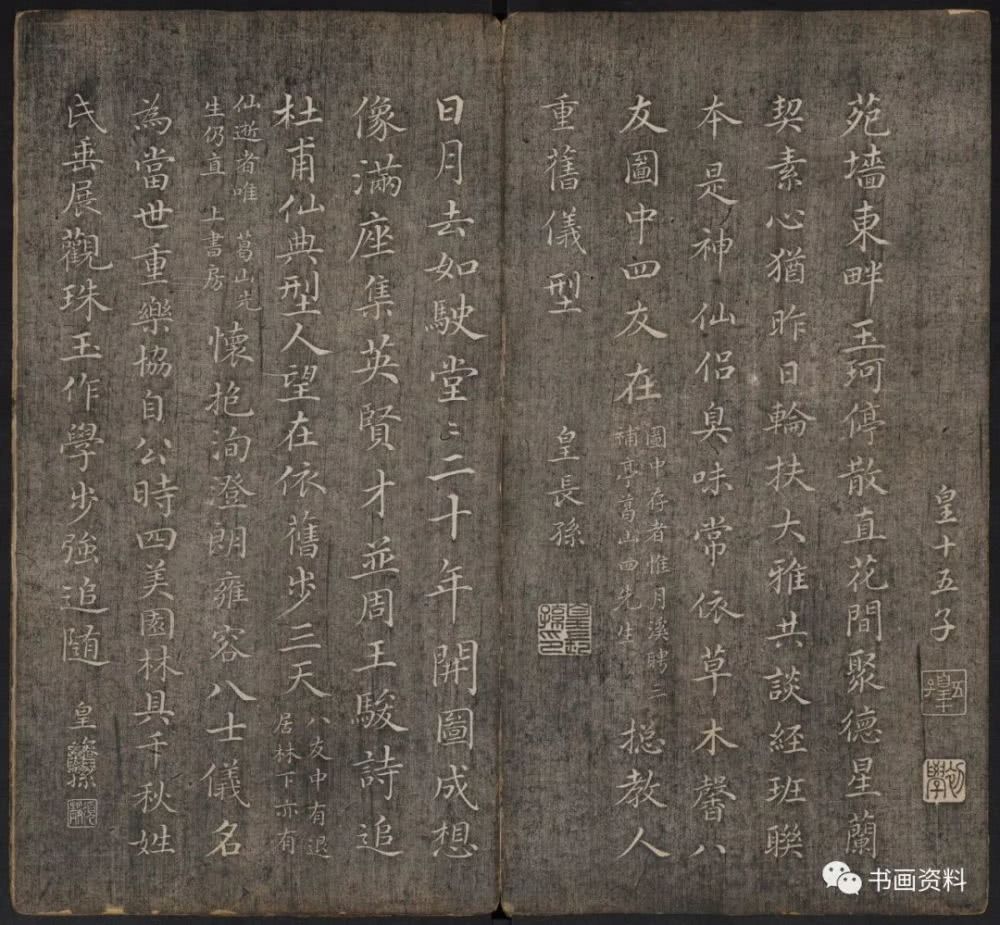 皇十五子
苑墻東畔玉珂停散直花間聚德星蘭
契素心猶昨日輪扶大雅共談經班聯
本是神仙侶臭味常依草木馨八
友圖中四友在
圖中存者惟月溪聘三
補亭葛山四先生
摠教人
重舊儀型
皇長孫
日月去如駛堂〻二十年開圖成想
像滿座集英賢才並周王駿詩追
杜甫仙典型人望在依舊步三天
八友中有退
居林下亦有
仙逝者唯葛山先
生仍直上書房
懷抱洵澄朗雍容八士儀名
為當世重樂協自公時四美園林具千秋姓
氏垂展觀珠玉作學步強追随
皇孫
书画资料